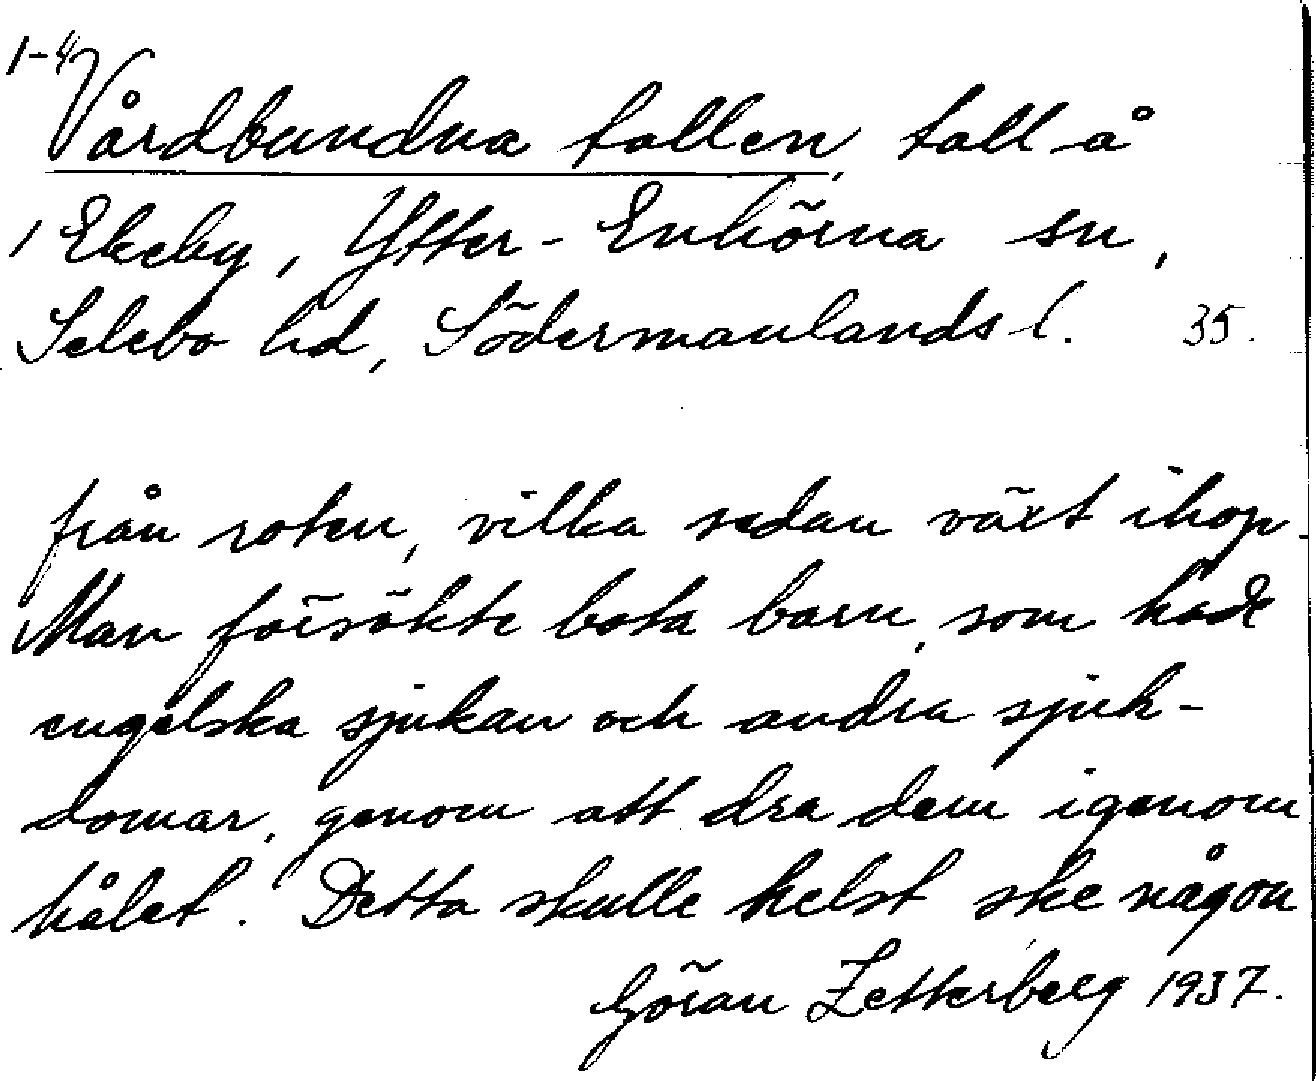 1-4
Vårdbundna tallen, tall å
1 Ekeby, Ytter-Enhörna sn,
Selebo hd, Södermanlands l. 35.
från roten, vilka sedan växt ihop.
Man försökte bota barn, som hade
engelska sjukan och andra sjuk-
domar, genom att dra dem igenom
hålet. Detta skulle helst ske någon
Göran Zetterberg 1937.